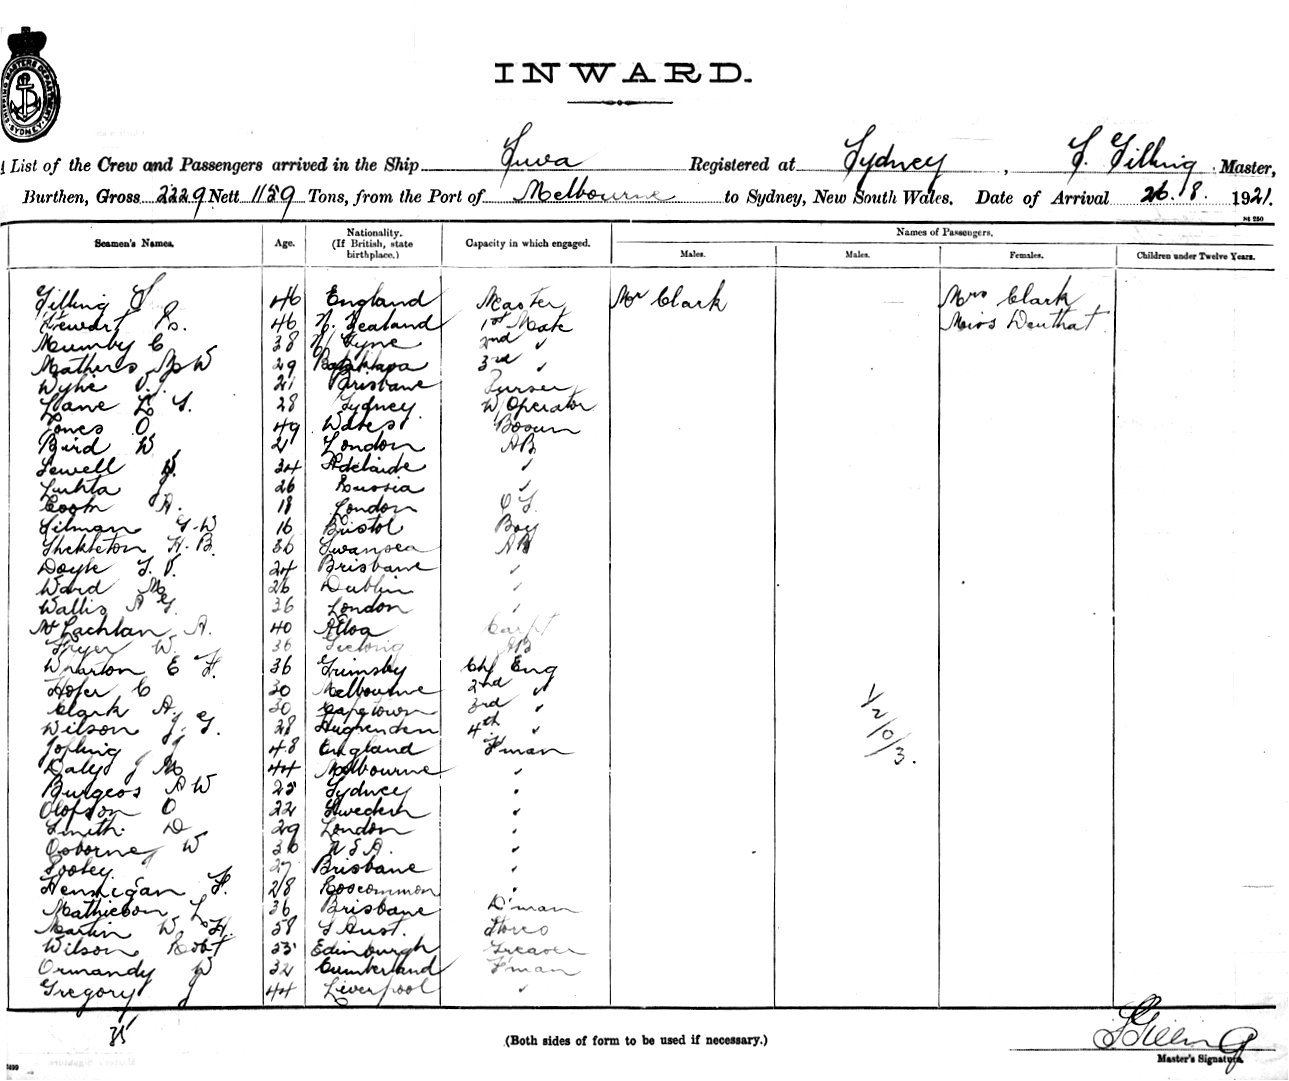 SHIPPING MASTERS DEPARTMENT SYDNEY
INWARD.
List of the Crew and Passengers arrived in the Ship Suva Registered at Sydney, S. Gilling Master,
Burthen, Gross 2229 Nett 1159 Tons, from the Port of Melbourne to Sydney, New South Wales, Date of Arrival 26.8.1921.
Seamen's Names. Age. Nationality. (If British, state birthplace.) Capacity in which engaged. Names of Passengers.
Males. Males. Females. Children under Twelve Years.
Gilling S 46 England Master Mr Clark Mrs Clark
Stewart 46 N. Zealand 1st Mate Miss Denthat
Mumby C 38 N/ Tyne 2nd "
Mathers W 29 3rd "
Wylie 21 Brisbane Purser
Lane L S. 28 Sydney W/Operator
Jones O 49 Wales Bosun
Bird W 21 London AB
Sewell 34 Adelaide "
Luhta J 26 Russia "
Coom A. 18 London O S.
Silman G.W 16 Bristol Boy
Shekleton H.B. 36 Swansea AB
Doyle S. V. 24 Brisbane "
Ward M 26 Dublin "
Wallis A G. 36 London "
McLachlan A. 40 Alloa Carpt
Fryer W. 36 Geelong AB
Wharton E F. 36 Grimsby Chf Eng
Hofer C 30 Melbourne 2nd "
Clark A. 30 Capetown 3rd "
Wilson J. G. 28 Hughenden 4th "
Jopling J 48 England F'man
Daly J M 44 Melbourne "
Burgess A W 25 Sydney "
Olofson O 22 Sweden "
Smith. D 29 London "
Osborne W 36 U S A. "
Sooley 27 Brisbane "
Hennigan F. 28 Roscommon "
Mathieson L 36 Brisbane D'man
Martin W. H. 58 S Aust. Stores
Wilson Robt 33 Edinburgh Greaser
Ormandy W 32 Cumberland F'man
Gregory J 44 Liverpool "
1/2/0/3.
35
(Both sides of form to be used if necessary.)
S Gilling
Master's Signature.